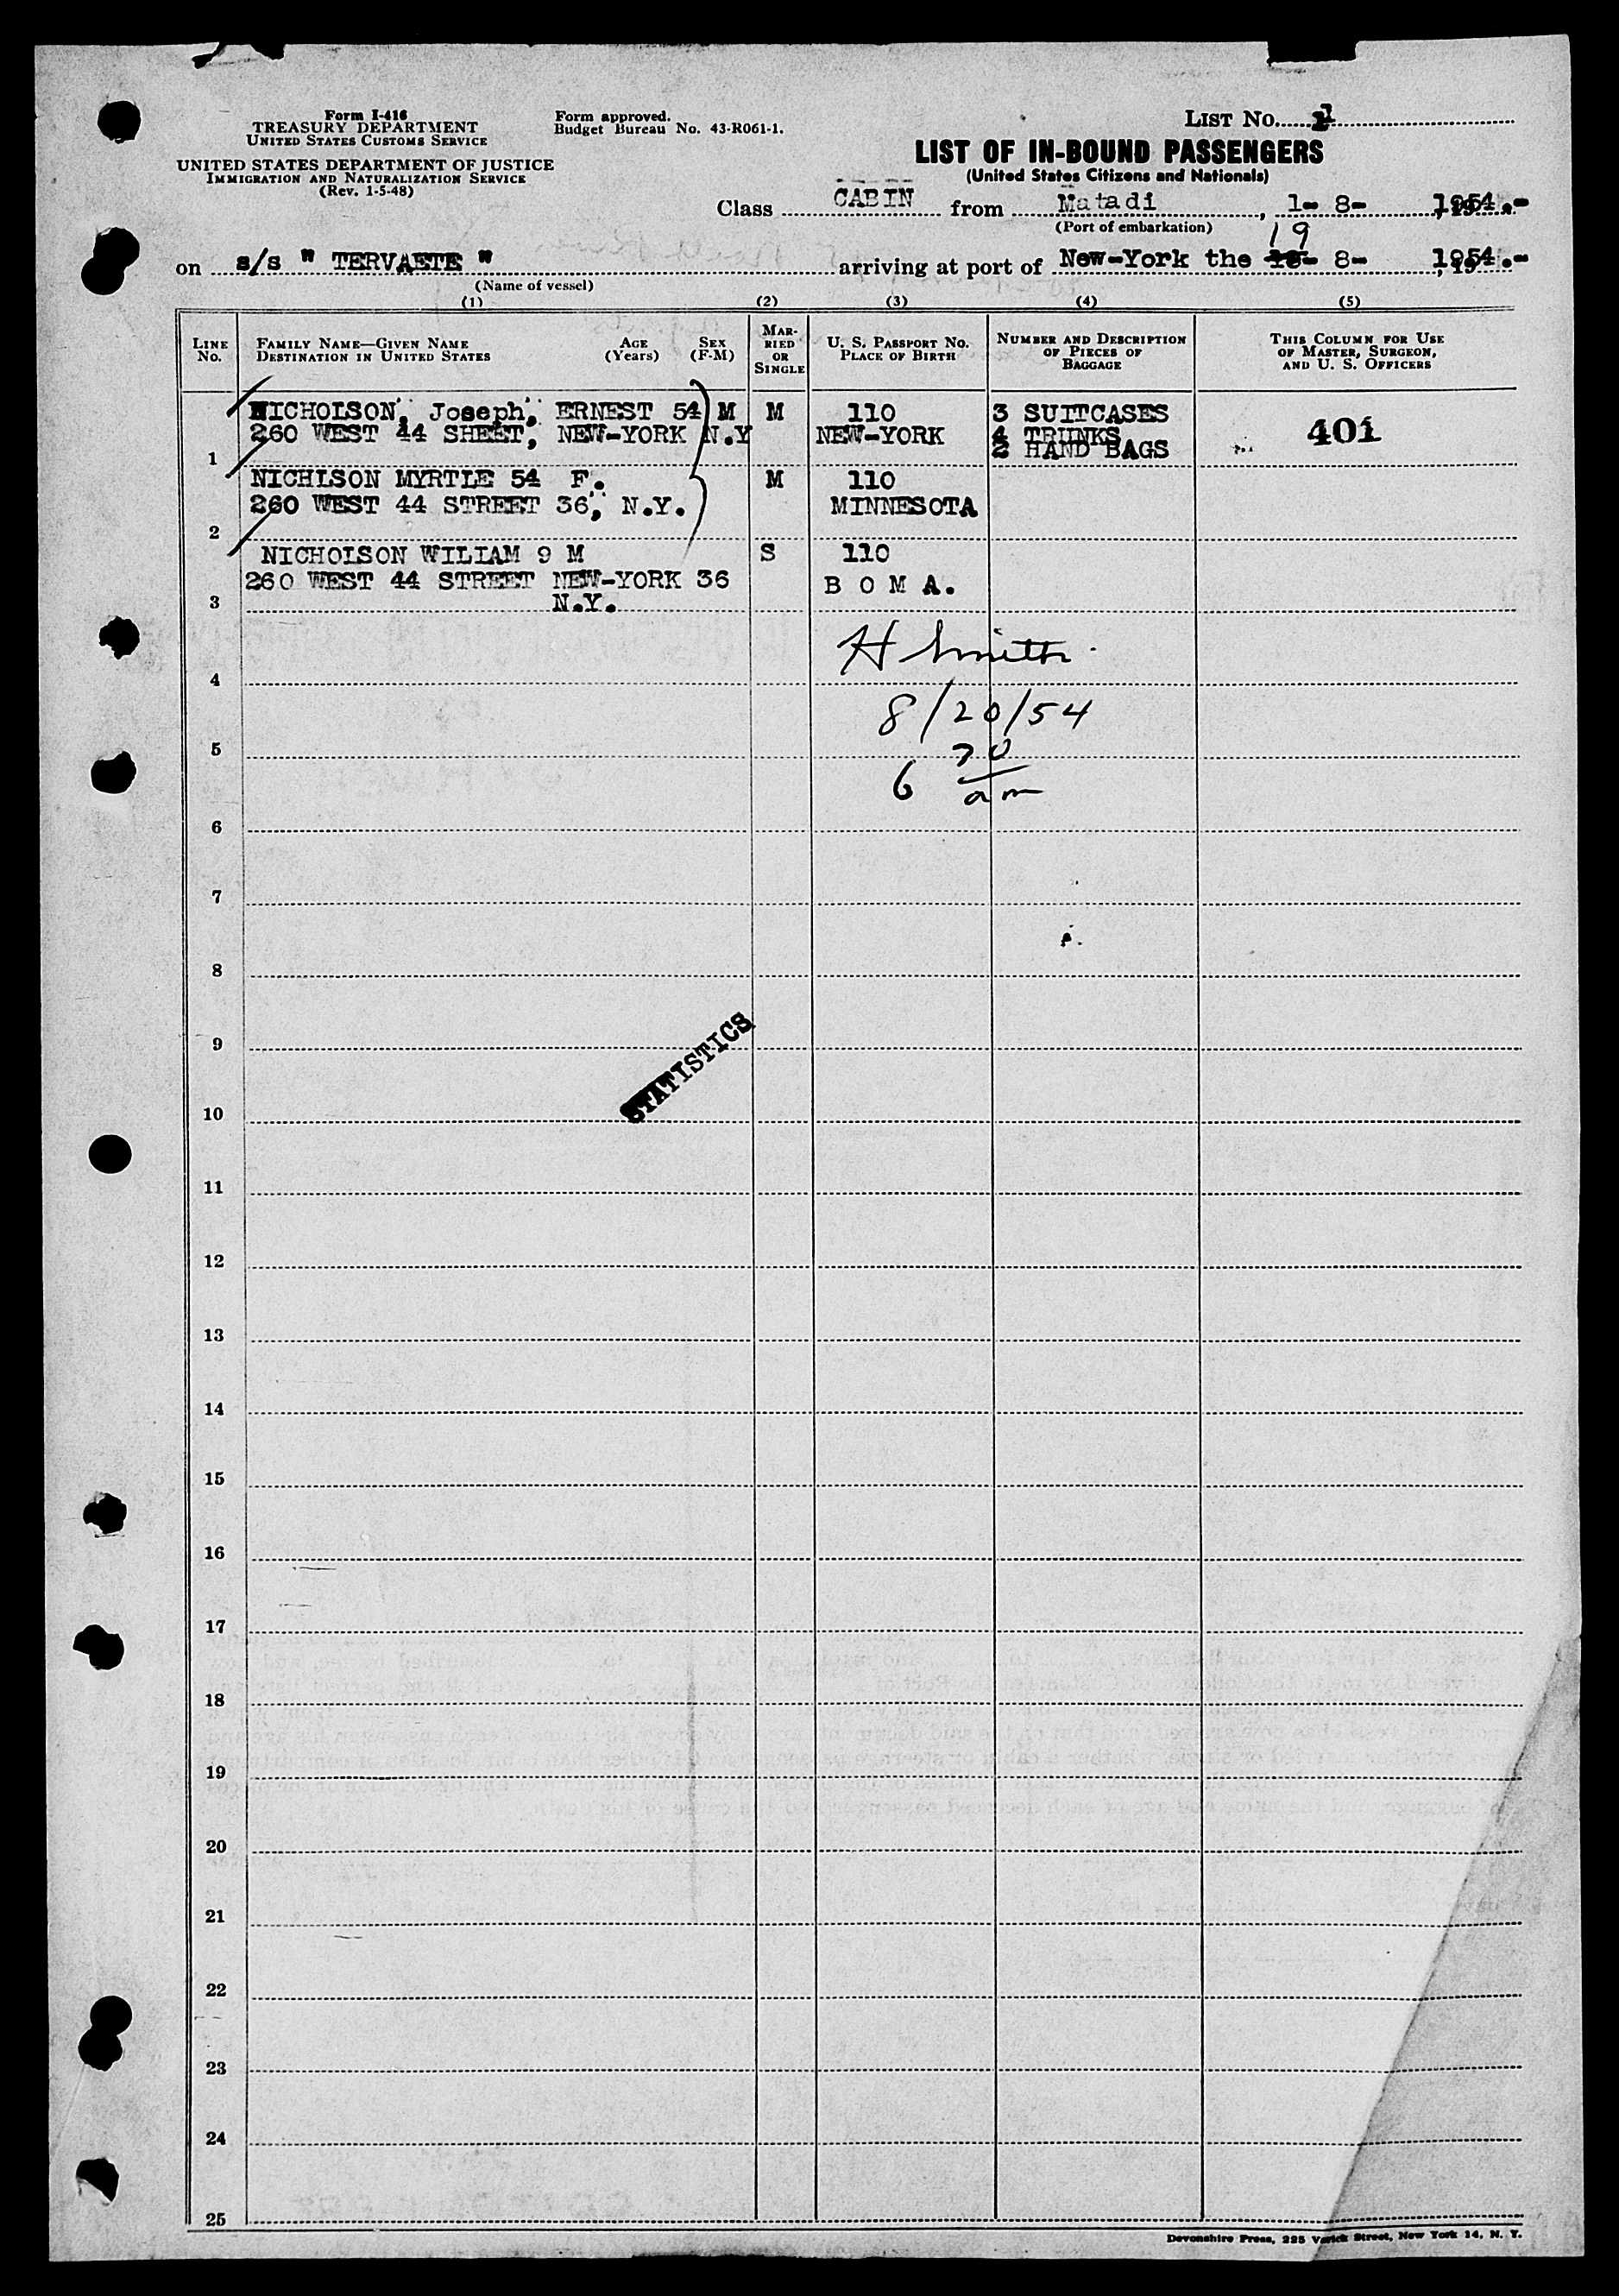 Form I-416
TREASURY DEPARTMENT
UNITED STATES CUSTOMS SERVICE
UNITED STATES DEPARTMENT OF JUSTICE
IMMIGRATION AND NATURALIZATION SERVICE
(Rev. 1-5-48)
Form approved.
Budget Bureau No. 43-R061-1.
LIST No.
LIST OF IN-BOUND PASSENGERS
(United States Citizens and Nationals)
Class CABIN from Matadi, 1- 8- 1954.-
(Port of embarkation)
19
on s/s " TERVAETE " arriving at port of New-York the 8- 1954.-
(Name of vessel)
(1) (2) (3) (4) (5)
LINE No.
FAMILY NAME—GIVEN NAME
DESTINATION IN UNITED STATES
AGE (Years)
SEX (F-M)
MARRIED OR SINGLE
U. S. PASSPORT NO.
PLACE OF BIRTH
NUMBER AND DESCRIPTION OF PIECES OF BAGGAGE
THIS COLUMN FOR USE OF MASTER, SURGEON, AND U. S. OFFICERS
NICHOLSON, Joseph, ERNEST 54 M M 110 3 SUITCASES 401
260 WEST 44 SHEET, NEW-YORK N.Y NEW-YORK 4 TRUNKS
1 2 HAND BAGS
NICHLSON MYRTLE 54 F. M 110
260 WEST 44 STREET 36, N.Y. MINNESOTA
2
NICHOLSON WILIAM 9 M S 110
260 WEST 44 STREET NEW-YORK 36 B O M A.
3 N.Y.
H Smith
4
8/20/54
5
6 am
6
7
8
STATISTICS
9
10
11
12
13
14
15
16
17
18
19
20
21
22
23
24
25
Devonshire Press, 225 Varick Street, New York 14, N. Y.